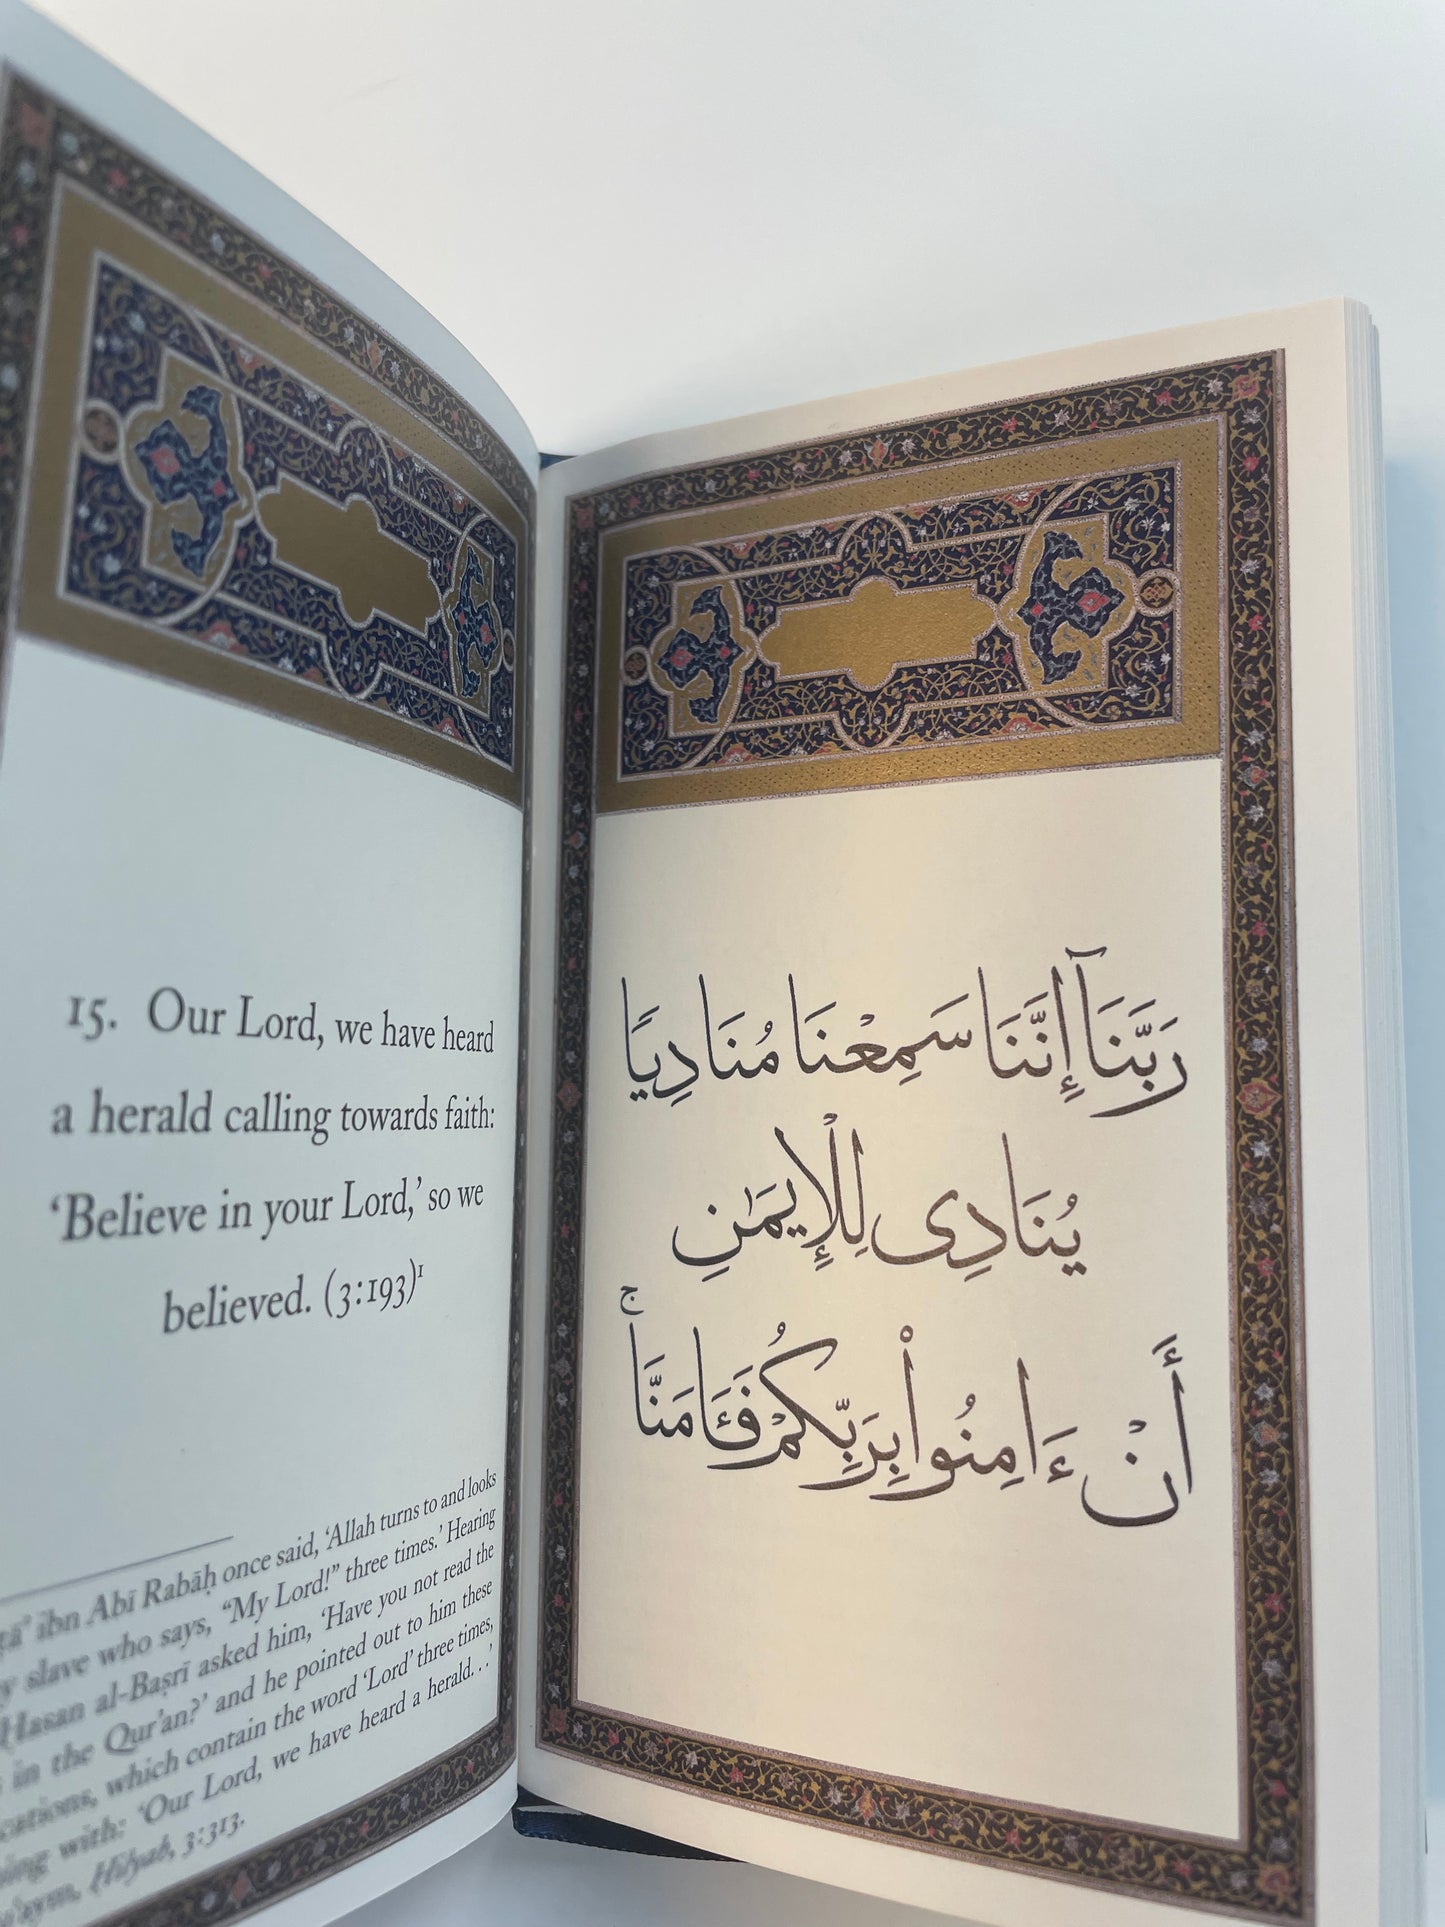 15. Our Lord, we have heard
a herald calling towards faith:
‘Believe in your Lord,’ so we
believed. (3:193)¹
ibn Abī Rabāḥ once said, ‘Allah turns to and looks
slave who says, “My Lord!” three times.’ Hearing
Ḥasan al-Baṣrī asked him, ‘Have you not read the
in the Qur’an?’ and he pointed out to him these
which contain the word ‘Lord’ three times,
with: ‘Our Lord, we have heard a herald. . .’
Ḥilyah, 3:313.
رَبَّنَآ إِنَّنَا سَمِعْنَا مُنَادِيًا
يُنَادِى لِلْإِيمَٰنِ
أَنْ ءَامِنُوا۟ بِرَبِّكُمْ فَـَٔامَنَّا ۚ